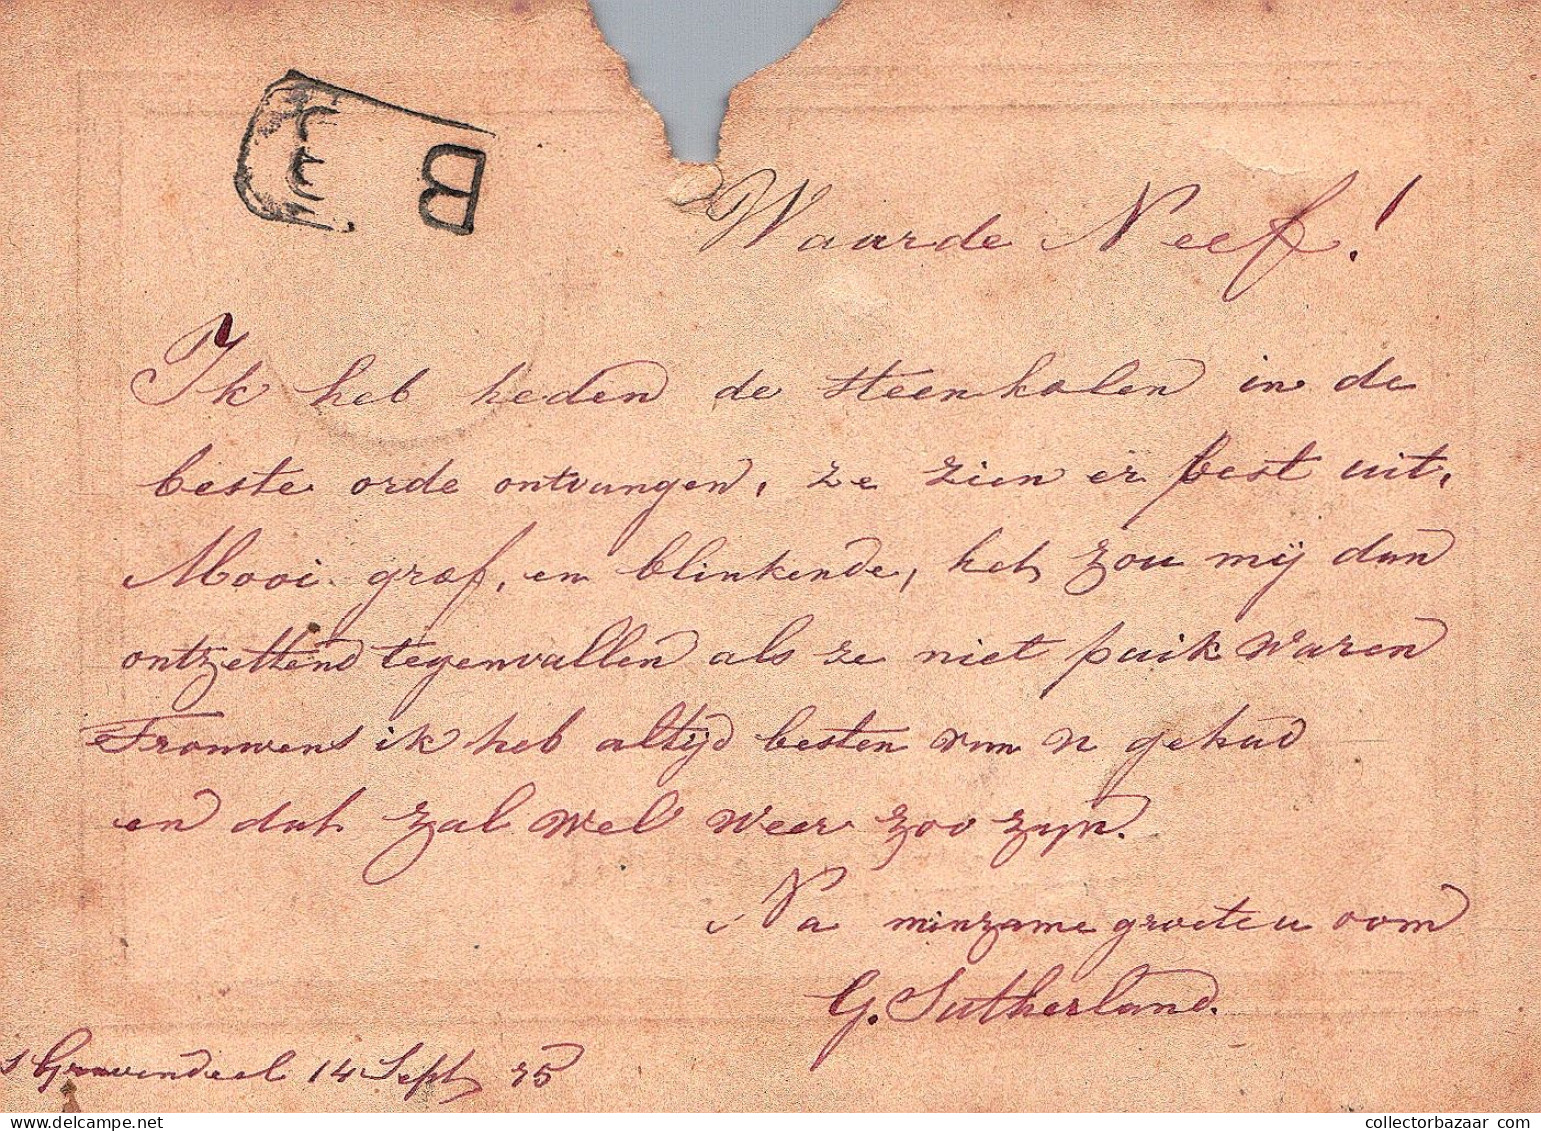 B
Waarde Neef!
Ik heb heden de steenkolen in de
beste orde ontvangen, ze zien er best uit,
Mooi grof, en blinkende, het zou mij dan
ontzettend tegenvallen als ze niet puik waren
Trouwens ik heb altijd besten van u gehad
en dat zal wel weer zoo zijn.
Na minzame groete u oom
G. Sutherland.
s Gravendeel 14 Sept 95
collectorbazaar.com